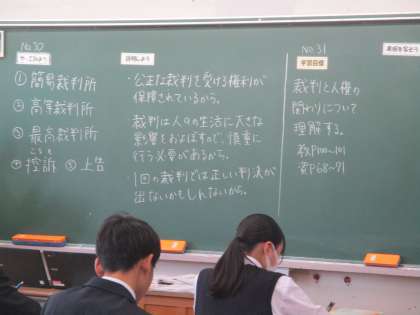 No.30
やってみよう
① 簡易裁判所
② 高等裁判所
③ 最高裁判所
こうそ
④ 控訴 ⑤ 上告
説明しよう
・公正な裁判を受ける権利が
保障されているから。
・裁判は人々の生活に大きな
影響をおよぼすので、慎重に
行う必要があるから。
・1回の裁判では正しい判決が
出ないかもしれないから。
No.31
学習目標
裁判と人権の
関わりについて
理解する。
教P100~101
資P68~71